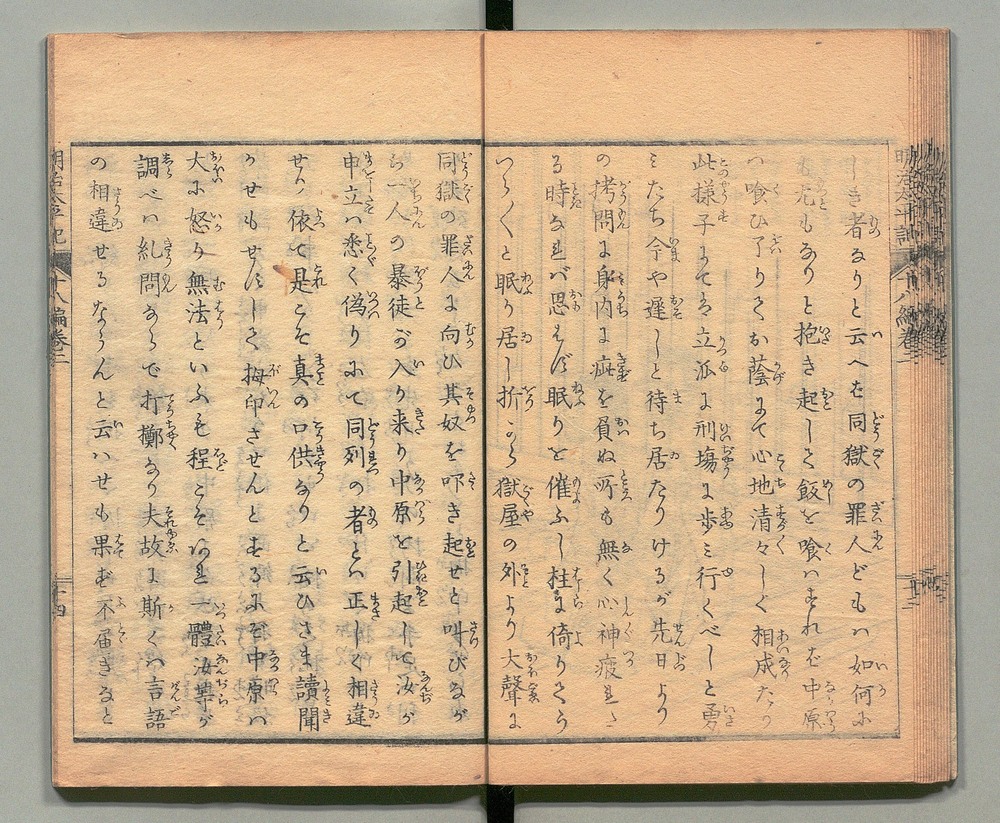 しき者なりと云へば同獄の罪人どもハ如何に
も尤もなりと抱き起して飯を喰ハすれば中原
ハ喰ひ了りてお蔭にて心地清々しく相成たり
此様子にてハ立派に刑場に歩ミ行くべしと勇
ミたち今や遅しと待ち居たりけるが先日より
の拷問に身内に疵を負ぬ所も無く心神疲れた
る時なれバ思はず眠りを催ふし柱に倚りてう
つらくと眠り居し折から獄屋の外より大聲に
同獄の罪人に向ひ其奴を叩き起せと叫びなが
ら一人の暴徒が入り来り中原を引起して汝が
申立ハ悉く偽りにて同列の者とハ正しく相違
せり依て是こそ真の口供なりと云ひさま讀聞
かせもせずして拇印させんとするにぞ中原ハ
大に怒り無法といふも程こそあれ一體汝等が
調べハ糺問ならで打擲なり夫故に斯くハ言語
の相違せるならんと云ハせも果ず不届きなと
明治太平記 十八編巻二 十四